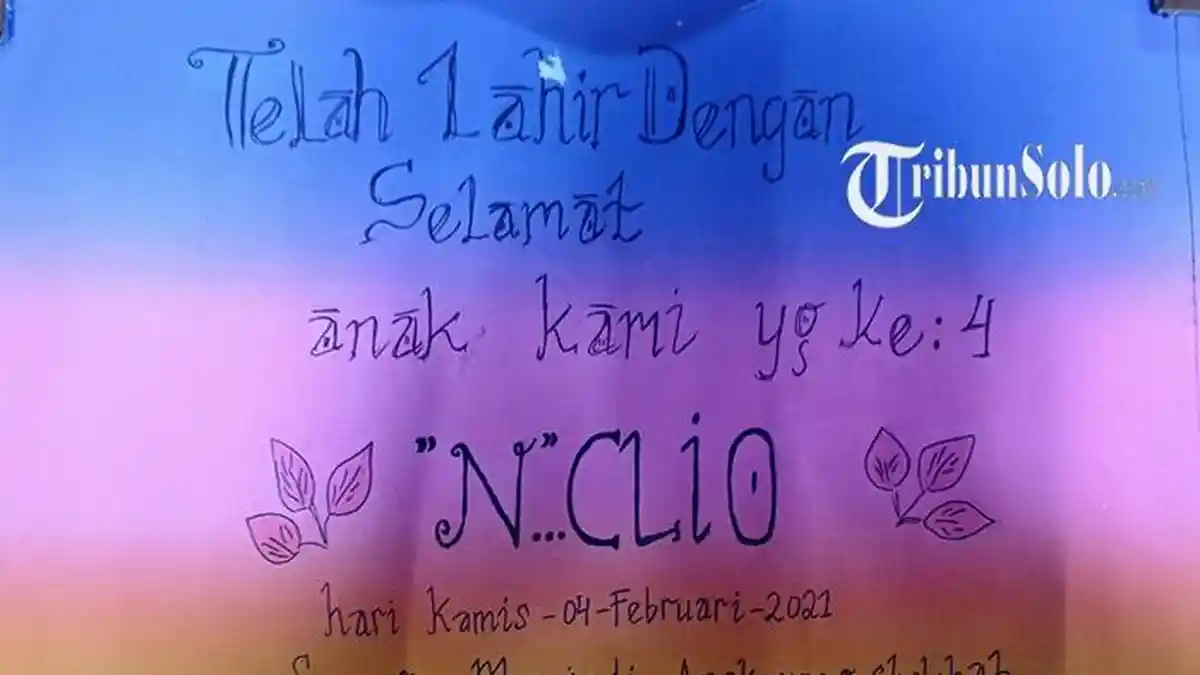 Telah Lahir Dengan
TribunSolo.com
Selamat
anak kami yg ke: 4
"N"...CLiO
hari Kamis-04-Februari-2021
Anak yang